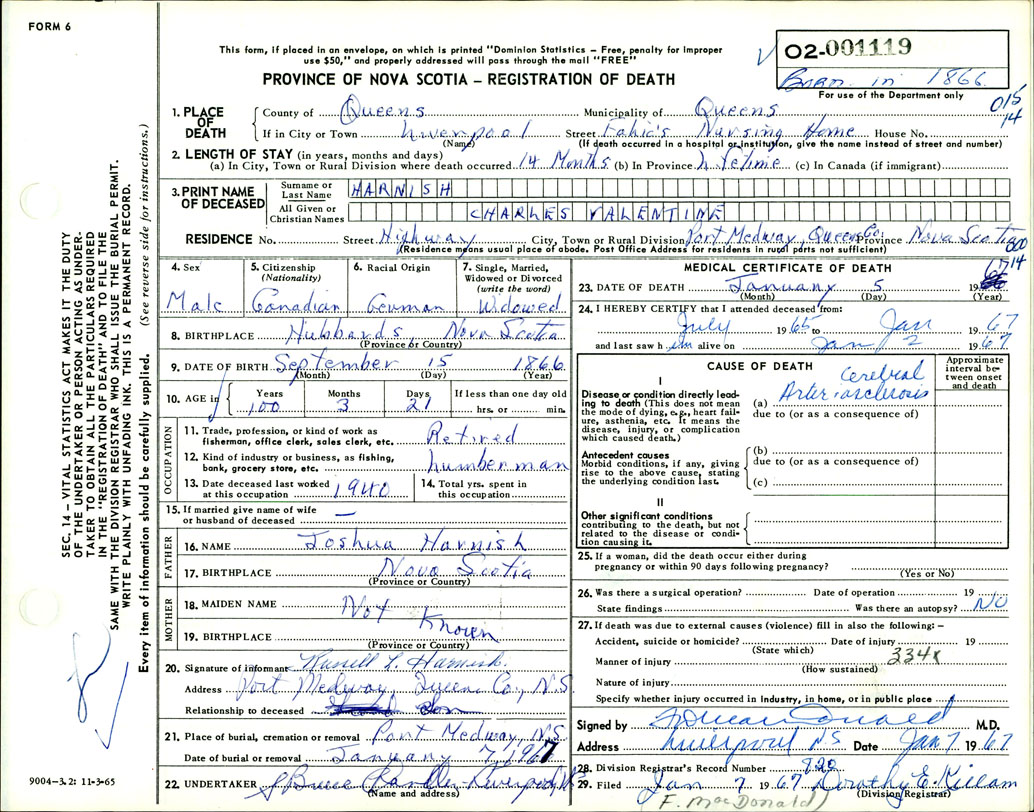 FORM 6
This form, if placed in an envelope, on which is printed "Dominion Statistics – Free, penalty for improper
use $50," and properly addressed will pass through the mail "FREE"
PROVINCE OF NOVA SCOTIA – REGISTRATION OF DEATH
02-001119
Born in 1866
For use of the Department only
015
14
SEC. 14 – VITAL STATISTICS ACT MAKES IT THE DUTY
OF THE UNDERTAKER OR PERSON ACTING AS UNDER-
TAKER TO OBTAIN ALL THE PARTICULARS REQUIRED
IN THE "REGISTRATION OF DEATH" AND TO FILE THE
SAME WITH THE DIVISION REGISTRAR WHO SHALL ISSUE THE BURIAL PERMIT.
WRITE PLAINLY WITH UNFADING INK. THIS IS A PERMANENT RECORD.
Every item of information should be carefully supplied. (See reverse side for instructions.)
1. PLACE OF DEATH
County of Queens Municipality of Queens
If in City or Town Liverpool Street Fahie's Nursing Home House No.
(Name) (If death occurred in a hospital or institution, give the name instead of street and number)
2. LENGTH OF STAY (in years, months and days)
(a) In City, Town or Rural Division where death occurred 14 Months (b) In Province Lifetime (c) In Canada (if immigrant)
3. PRINT NAME OF DECEASED
Surname or Last Name HARNISH
All Given or Christian Names CHARLES VALENTINE
RESIDENCE No. Street Highway City, Town or Rural Division Port Medway, Queens Co. Province Nova Scotia
(Residence means usual place of abode. Post Office Address for residents in rural parts not sufficient)
800
14
4. Sex
Male
5. Citizenship (Nationality)
Canadian
6. Racial Origin
German
7. Single, Married, Widowed or Divorced (write the word)
Widowed
8. BIRTHPLACE Hubbards, Nova Scotia
(Province or Country)
9. DATE OF BIRTH September 15 1866
(Month) (Day) (Year)
10. AGE in Years Months Days If less than one day old
100 3 21 hrs. or min.
OCCUPATION
11. Trade, profession, or kind of work as
fisherman, office clerk, sales clerk, etc. Retired
12. Kind of industry or business, as fishing,
bank, grocery store, etc. Lumberman
13. Date deceased last worked at this occupation 1940
14. Total yrs. spent in this occupation
15. If married give name of wife
or husband of deceased —
FATHER
16. NAME Joshua Harnish
17. BIRTHPLACE Nova Scotia
(Province or Country)
MOTHER
18. MAIDEN NAME Not
19. BIRTHPLACE Known
(Province or Country)
20. Signature of informant Russell L. Harnish
Address Port Medway, Queens Co., N.S
Relationship to deceased Son
21. Place of burial, cremation or removal Port Medway, N.S
Date of burial or removal January 7, 1967
22. UNDERTAKER J Bruce Chandler Liverpool N.S
(Name and address)
MEDICAL CERTIFICATE OF DEATH
23. DATE OF DEATH January 5 1967
(Month) (Day) (Year)
24. I HEREBY CERTIFY that I attended deceased from:
July 1965 to Jan 1967
and last saw him alive on Jan 2 1967
CAUSE OF DEATH
Approximate interval between onset and death
I
Disease or condition directly lead-
ing to death (This does not mean
the mode of dying, e.g., heart fail-
ure, asthenia, etc. It means the
disease, injury, or complication
which caused death.)
(a) Cerebral Arteriosclerosis
due to (or as a consequence of)
Antecedent causes
Morbid conditions, if any, giving
rise to the above cause, stating
the underlying condition last.
(b)
due to (or as a consequence of)
(c)
II
Other significant conditions
contributing to the death, but not
related to the disease or condi-
tion causing it.
25. If a woman, did the death occur either during
pregnancy or within 90 days following pregnancy?
(Yes or No)
26. Was there a surgical operation? Date of operation 19
State findings Was there an autopsy? NO
27. If death was due to external causes (violence) fill in also the following: –
Accident, suicide or homicide? Date of injury 19
(State which)
Manner of injury 334X
(How sustained)
Nature of injury
Specify whether injury occurred in Industry, in home, or in public place
Signed by M.D.
Address Liverpool N.S Date Jan 7 1967
28. Division Registrar's Record Number 820
29. Filed Jan 7 1967 Dorothy E. Killam
(Division Registrar)
F. MacDonald)
9004-3.2: 11-3-65